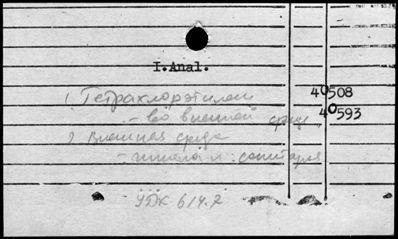 I.Anal.
1. Тетрахлорэтилен 40508
- во внешней среде, 40593
2 Внешняя среда
- гигиена и санитария
УДК 614.7